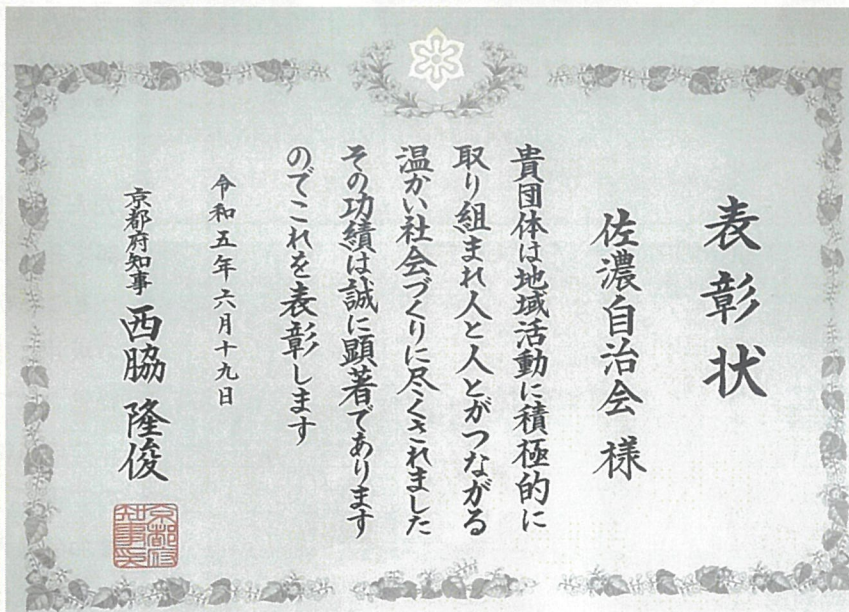 表彰状
佐濃自治会 様
貴団体は地域活動に積極的に
取り組まれ人と人とがつながる
温かい社会づくりに尽くされました
その功績は誠に顕著であります
のでこれを表彰します
令和五年六月十九日
京都府知事 西脇 隆俊
京都府
知事之印